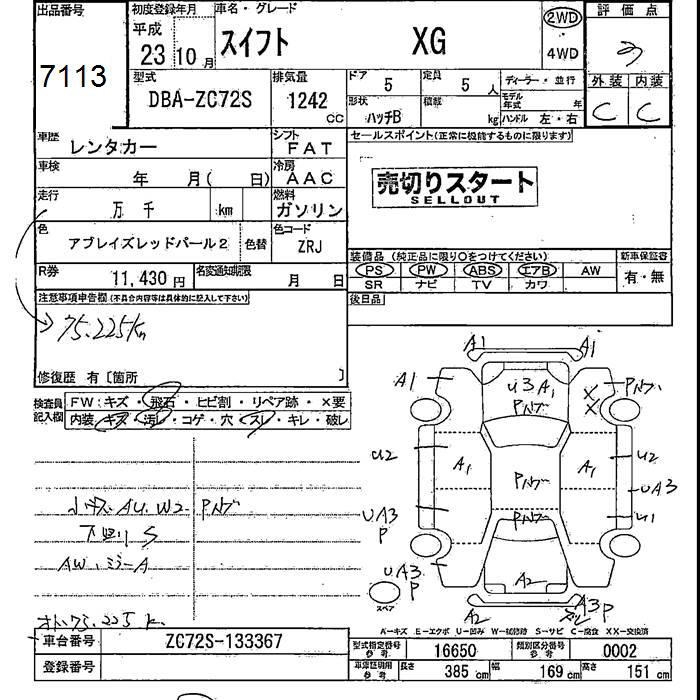 出品番号 初度登録年月 車名・グレード 評価点
7113
平成 23年 10月 スイフト XG 2WD 4WD
外装 内装
C C
型式 排気量 ドア 5 定員 5人 ディーラー・並行
DBA-ZC72S 1242 cc 形状 ハッチB 積載 kg モデル年式 年
ハンドル 左・右
車歴 レンタカー シフト FAT セールスポイント(正常に機能するものに限ります)
車検 年 月( 日) 冷房 AAC
売切りスタート
SELLOUT
走行 万 千 km 燃料 ガソリン
色 アブレイズレッドパール2 色替 色コード ZRJ
装備品(純正品に限り○をつけてください) 新車保証書
PS PW ABS エアB AW 有・無
SR ナビ TV カワ
R券 11,430円 名変通知期限 月 日
後日品
注意事項申告欄(不具合内容等は具体的に記入して下さい)
75.225km
修復歴 有〔箇所 〕
検査員記入欄 FW:キズ・飛石・ヒビ割・リペア跡・×要
内装、キズ・汚レ・コゲ・穴・スレ・キレ・破レ
A1 A1
A1 U3 A1
U2 A1 A1 U2
UA3 P UA3
U1
UA3 P
スペア
A2
A2 A3P
小キズ AU.W2
S
AW.ミラーA
75.225k
A-キズ E-エクボ U-凹み W-補修跡 S-サビ C-腐食 XX-交換済
車台番号 ZC72S-133367
登録番号
型式指定番号 参考 16650 類別区分番号 参考 0002
車庫証明用 参考 長さ 385cm 幅 169cm 高さ 151cm